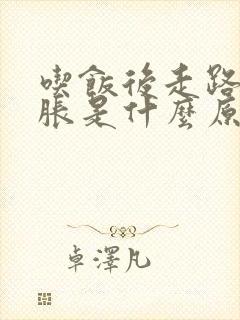 喫飯後走路
脹是什麼原
卓澤凡